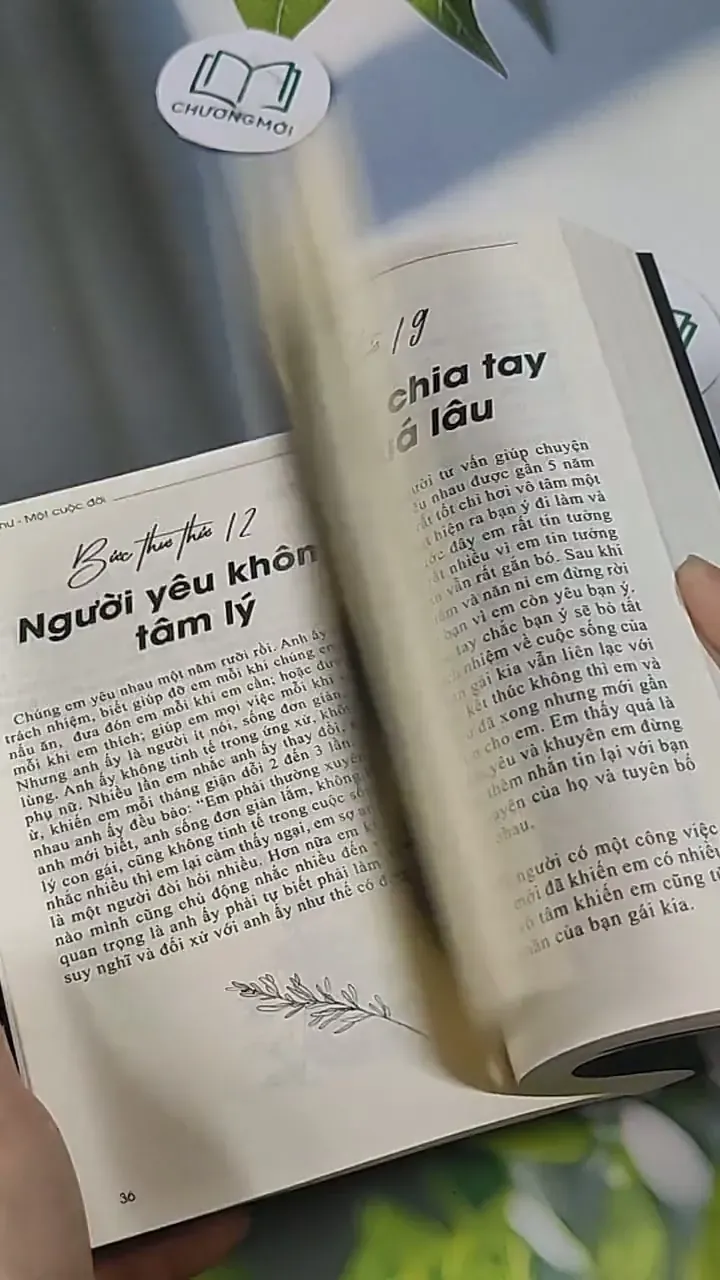 CHƯƠNGMỚI
thư - Một cuộc đời
Bức thư thứ 12
Người yêu khôn
tâm lý
Chúng em yêu nhau một năm rưỡi rồi. Anh ấy
trách nhiệm, biết giúp đỡ em mỗi khi chúng em
nấu ăn, đưa đón em mỗi khi em cần; hoặc đưa
mỗi khi em thích; giúp em mọi việc mỗi khi
Nhưng anh ấy là người ít nói, sống đơn giản,
lùng. Anh ấy không tinh tế trong ứng xử, khôn
phụ nữ. Nhiều lần em nhắc anh ấy thay đổi,
ừ, khiến em mỗi tháng giận dỗi 2 đến 3 lần.
nhau anh ấy đều bảo: “Em phải thường xuyên
anh mới biết, anh sống đơn giản lắm, không
lý con gái, cũng không tinh tế trong cuộc số
nhắc nhiều thì em lại cảm thấy ngại, em sợ an
là một người đòi hỏi nhiều. Hơn nữa em
nào mình cũng chủ động nhắc nhiều đến
quan trọng là anh ấy phải tự biết phải làm
suy nghĩ và đối xử với anh ấy như thế có đ
36
19
chia tay
lâu
tư vấn giúp chuyện
nhau được gần 5 năm
tốt chỉ hơi vô tâm một
hiện ra bạn ý đi làm và
đây em rất tin tưởng
nhiều vì em tin tưởng
vẫn rất gắn bó. Sau khi
và năn nỉ em đừng rời
bạn vì em còn yêu bạn ý.
tay chắc bạn ý sẽ bỏ tất
nhiệm về cuộc sống của
gái kia vẫn liên lạc với
kết thúc không thì em và
đã xong nhưng mới gần
cho em. Em thấy quá là
yêu và khuyên em đừng
thêm nhắn tin lại với bạn
của họ và tuyên bố
nhau.
người có một công việc
đã khiến em có nhiều
tâm khiến em cũng từ
của bạn gái kia.